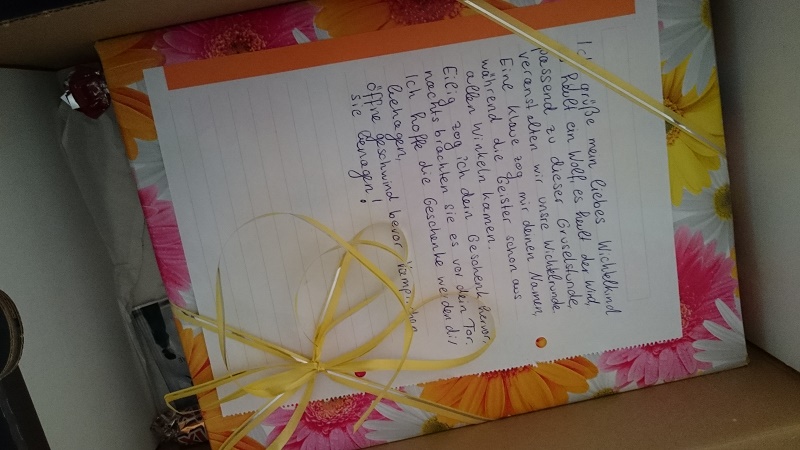 Ich grüße mein liebes Wichtelkind
heult ein Wolf, es heult der Wind,
passend zu dieser Gruselstunde,
veranstalten wir unsre Wichtelrunde.
Eine Klaue zog mir deinen Namen,
während die Geister schon aus
allen Winkeln kamen.
Eilig zog ich dein Geschenk hervor,
nachts brachten sie es vor dein Tor.
Ich hoffe die Geschenke werden dir
behagen,
öffne geschwind bevor Vampirchen
sie benagen!